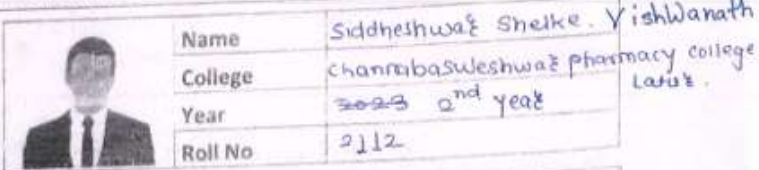 Name Siddheshwar Shelke. Vishwanath
College channabasweshwar pharmacy college
Latur.
Year 2023 2nd year
Roll No 2112